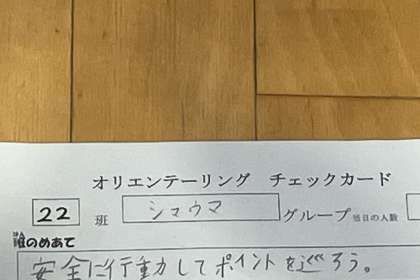 オリエンテーリング チェックカード
22 班 シマウマ グループ 班目の人数
誰のめあて
安全に行動してポイントを巡ろう。